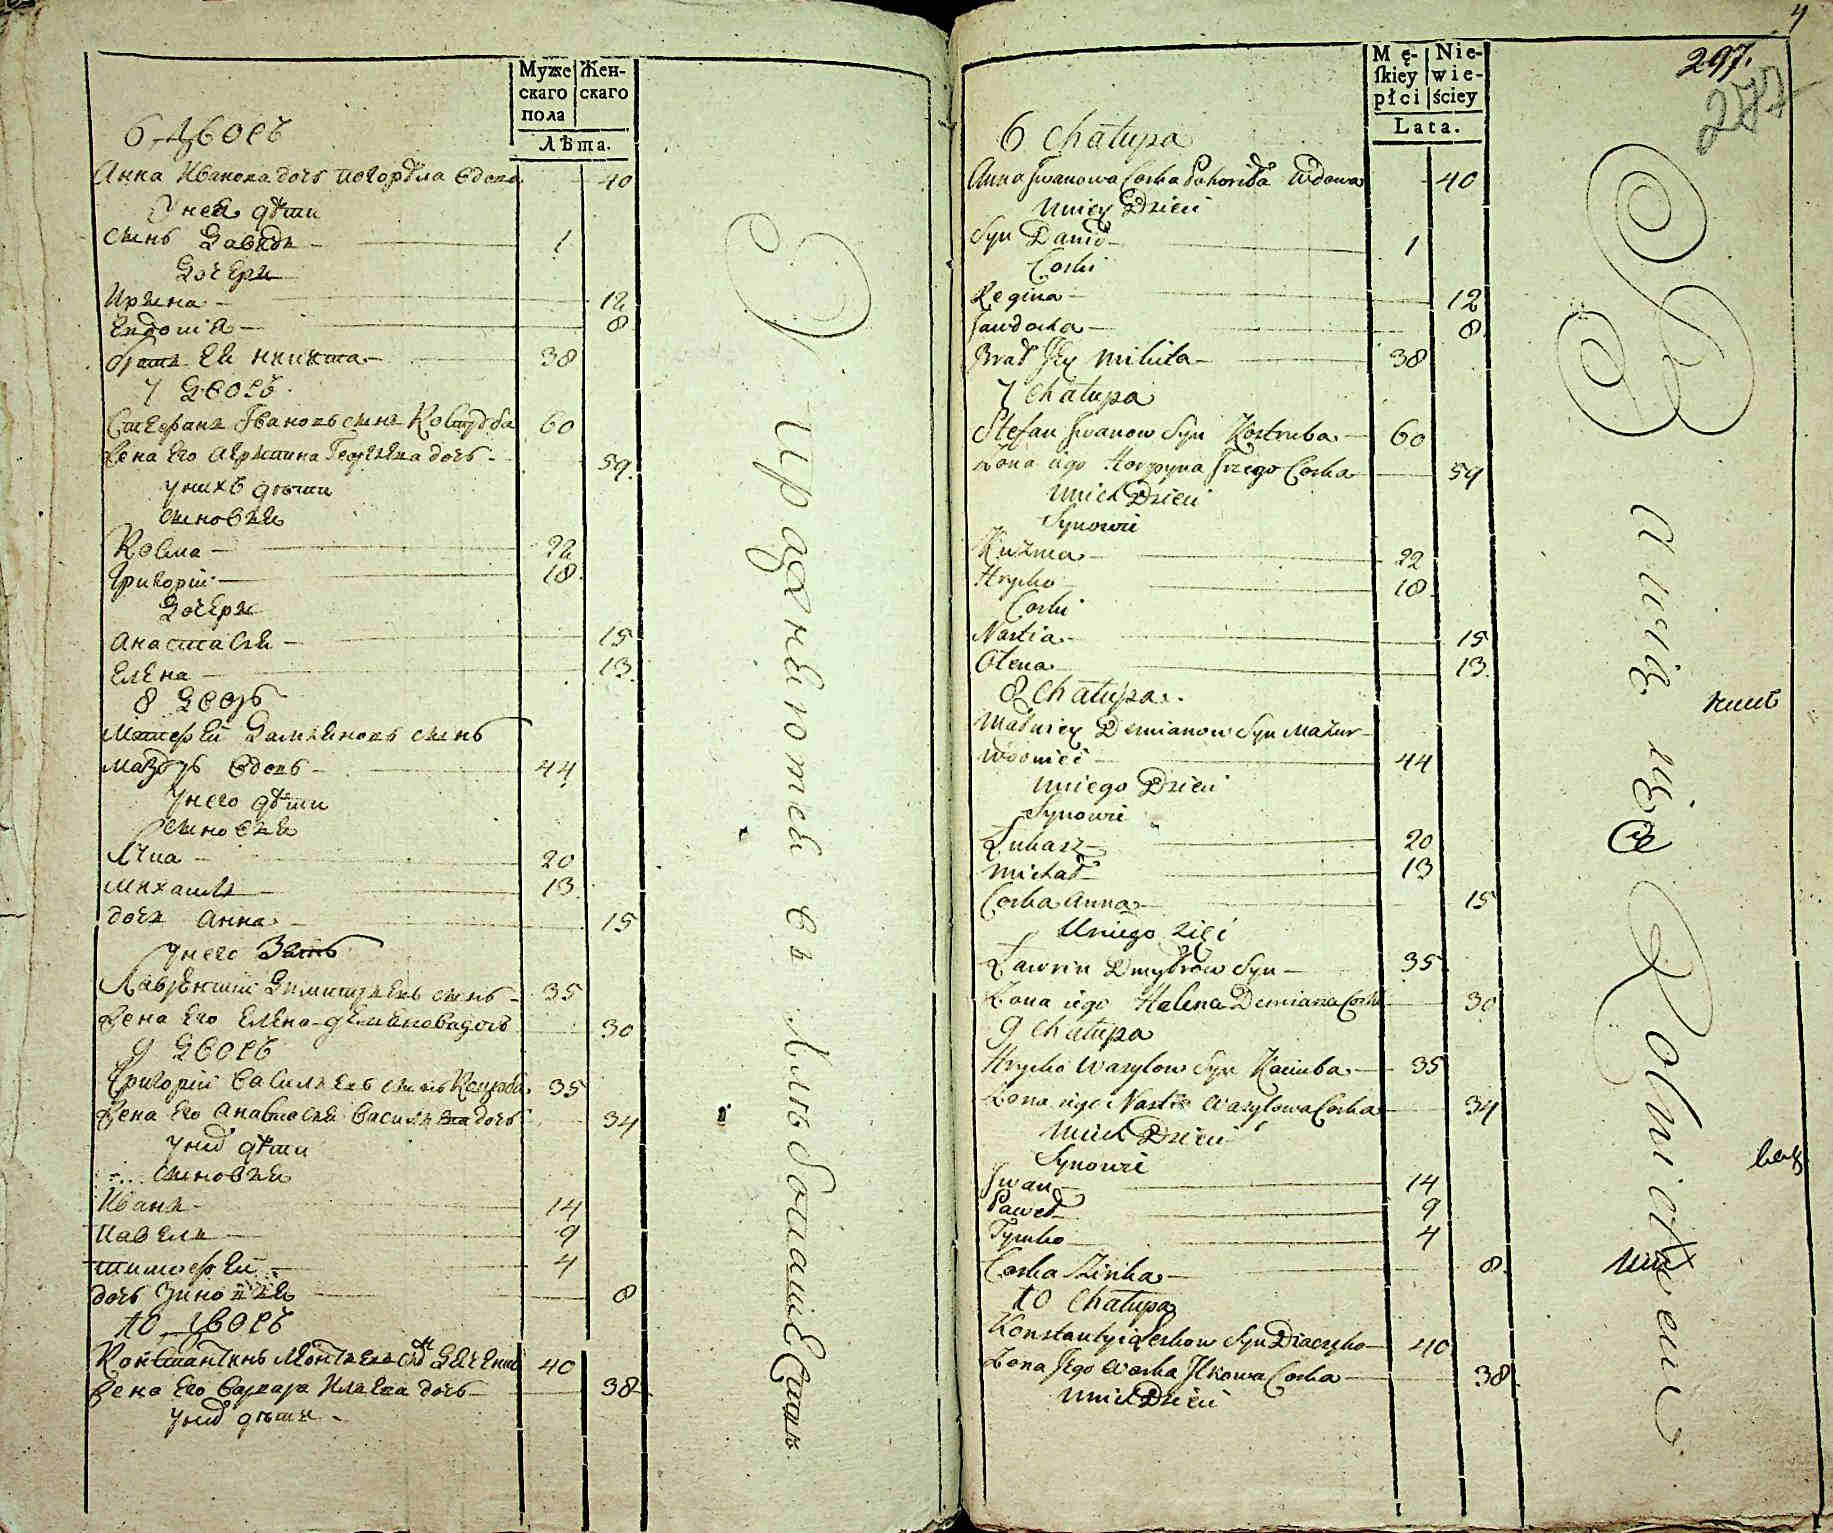 Муже Жен-
скаго скаго
пола
Лѣта.
6 дворъ
Анна Иванова дочь вдова 40
у ней дѣти
сынъ Давыдъ 1
Дочери
Ирина 12
Евдокия 8
братъ ей Никита 38
7 Дворъ
Стефанъ Ивановъ сынъ Коструба 60
Жена его дочь 59
у нихъ дѣти
сыновья
Козма 22
Григорій 18
Дочери
Анастасия 15
Елена 13
8 Дворъ
Матфей Дамияновъ сынъ
Мазуръ вдовъ 44
у него дѣти
сыновья
Лука 20
Михаилъ 13
дочь Анна 15
у него Зять
Лаврентий Димитриевъ сынъ 35
Жена его Елена дочь 30
9 Дворъ
Григорий Василиевъ сынъ 35
Жена его Анастасия Василиева дочь 34
у них дѣти
сыновья
Иванъ 14
Павелъ 9
Тимофей 4
дочь Зиновия 8
10 дворъ
Константинъ 40
Жена его Варвара Илиева дочь 38
у них дѣти
Упражняются въ Хлѣбопашествѣ
4
297.
287
M ę- Nie-
ſkiey wie-
płci ściey
Lata.
6 Chałupa
Anna Jwanowa Corka Wdowa 40
u niey Dzieci
Syn Daniło 1
Corki
Regina 12
Jawdocha 8
Brat Jey Mikita 38
7 Chałupa
Stefan Jwanow Syn Kostruba 60
Zona iego Corka 59
u nich Dzieci
Synowie
Kuzma 22
Hrycko 18
Corki
Nastia 15
Olena 13
8 Chałupa
Matwiey Demianow Syn Mazur
wdowiec 44
u niego Dzieci
Synowie
Łukasz 20
Michał 13
Corka Anna 15
U niego Zięć
Ławrin Dmytrow Syn 35
Zona iego Halena Demiana Corka 30
9 Chałupa
Hrycko Wasylow Syn 35
Zona iego Nastia Wasylowa Corka 34
u nich Dzieci
Synowie
Jwan 14
Paweł 9
Tymko 4
Corka Zinka 8
10 Chałupa
Konstantyi Leskow Syn 40
Zona Jego Warka Jlkowa Corka 38
u nich Dzieci
Bawią się Rolnictwem